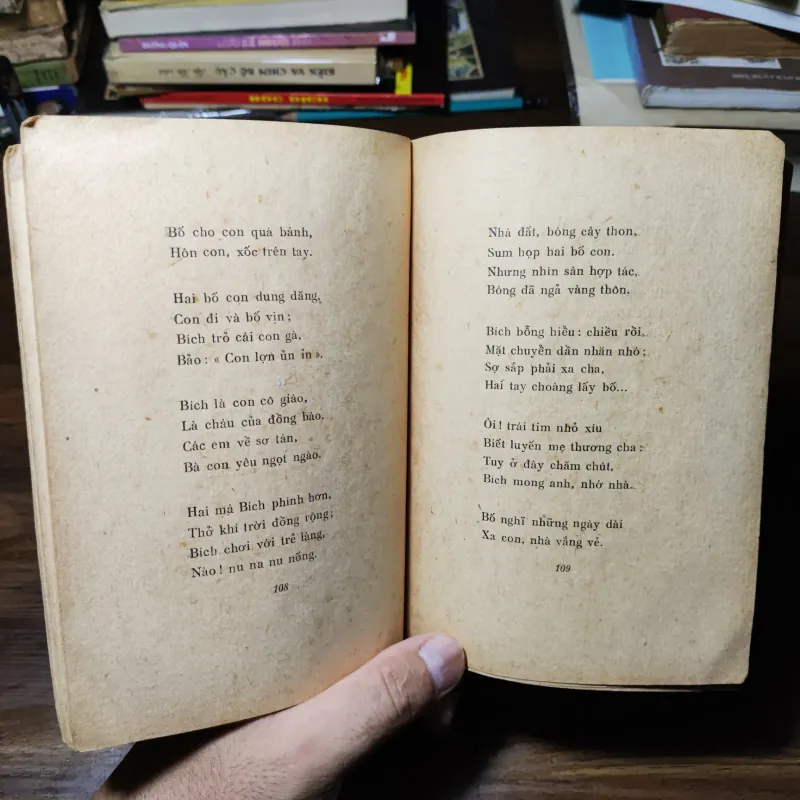 KIẾN VÀ CHIM BỒ CÂU
Bố cho con quà bánh,
Hôn con, xốc trên tay.
Hai bố con dung dăng,
Con đi và bố vịn;
Bích trỏ cái con gà,
Bảo: « Con lợn ủn ỉn».
Bích là con cô giáo,
Là cháu của đồng bào.
Các em về sơ tán,
Bà con yêu ngọt ngào.
Hai má Bích phính hơn,
Thở khí trời đồng rộng;
Bích chơi với trẻ làng,
Nào! nu na nu nống.
108
Nhà đất, bóng cây thon,
Sum họp hai bố con.
Nhưng nhìn sân hợp tác,
Bóng đã ngả vàng thôn.
Bích bỗng hiểu: chiều rồi,
Mặt chuyển dần nhăn nhó;
Sợ sắp phải xa cha,
Hai tay choàng lấy bố...
Ôi! trái tim nhỏ xíu
Biết luyến mẹ thương cha:
Tuy ở đây chăm chút,
Bích mong anh, nhớ nhà.
Bố nghĩ những ngày dài
Xa con, nhà vắng vẻ.
109